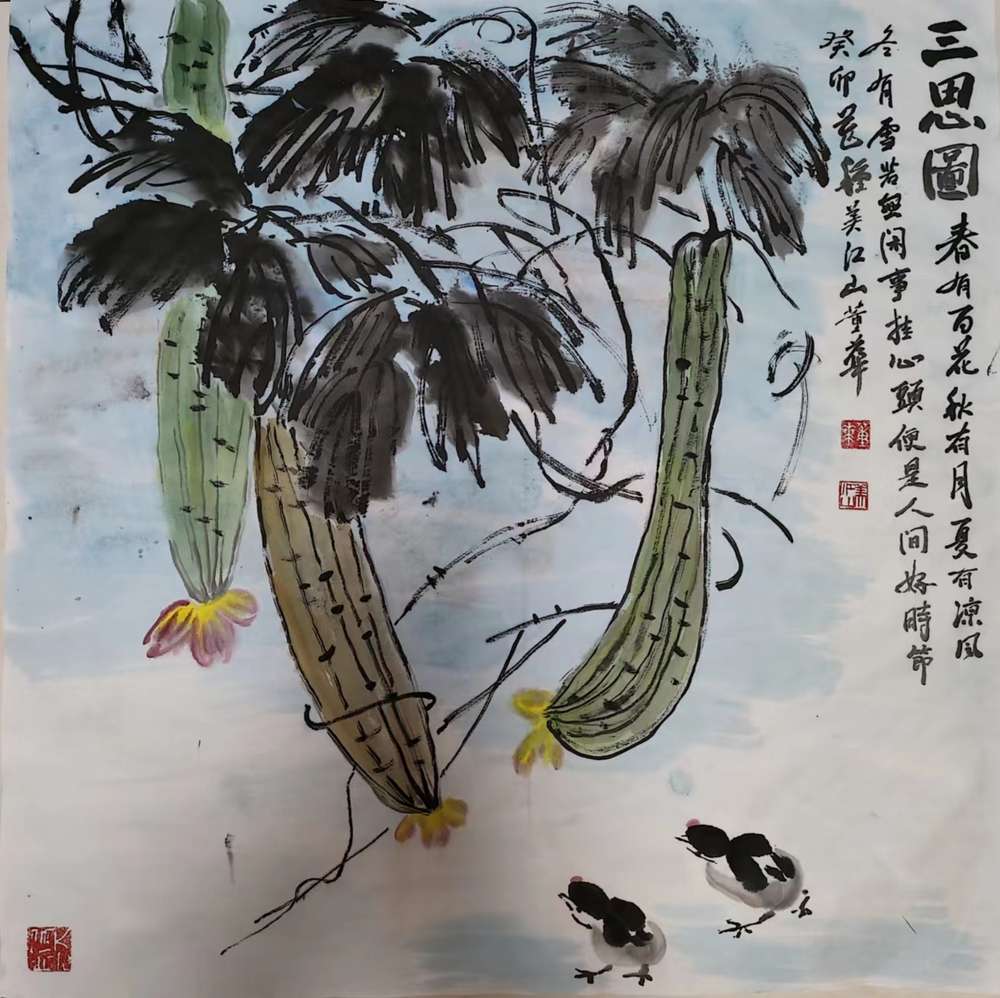 三思圖
春有百花秋有月夏有凉风
冬有雪若無闲事挂心頭便是人间好時節
癸卯美江山董華